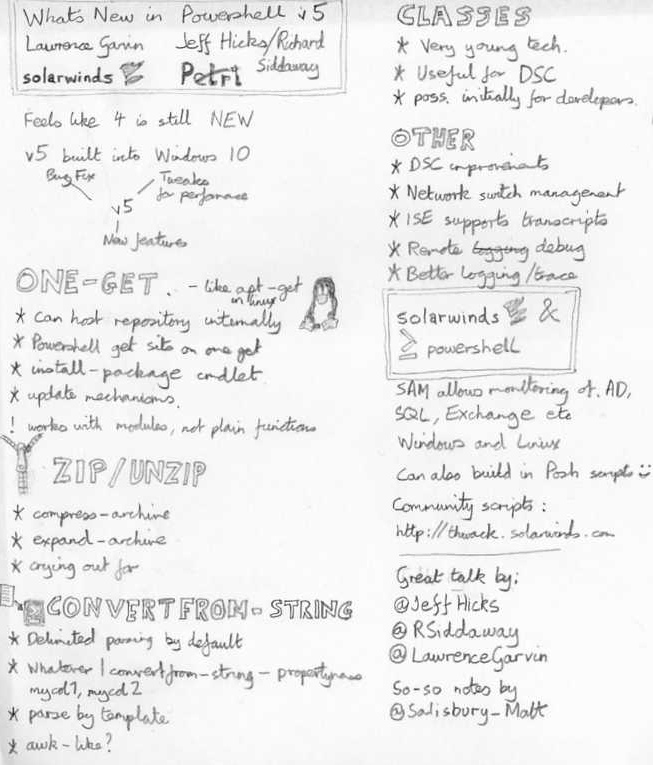 Whats New in Powershell v5
Lawrence Garvin Jeff Hicks/Richard
Siddaway
solarwinds Petri
Feels like 4 is still NEW
v5 built into Windows 10
Bug Fix
Tweaks
for perfomance
v5
New features
ONE-GET. - like apt-get
in linux
* Can host repository internally
* Powershell get sits on one get
* install-package cmdlet
* update mechanisms.
! works with modules, not plain functions
ZIP/UNZIP
* compress-archive
* expand-archive
* crying out for
CONVERTFROM-STRING
* Delimited parsing by default
* Whatever | convertfrom-string - propertynames
mycol1, mycol2
* parse by template
* awk-like?
CLASSES
* Very young tech.
* Useful for DSC
* poss. initially for developers.
OTHER
* DSC improvements
* Network switch management
* ISE supports transcripts
* Remote logging debug
* Better logging/trace
solarwinds &
powershell
SAM allows monitoring of. AD,
SQL, Exchange etc
Windows and Linux
Can also build in Posh scripts
Community scripts:
http://thwack.solarwinds.com
Great talk by:
@JeffHicks
@RSiddaway
@LawrenceGarvin
So-so notes by
@Salisbury-Matt